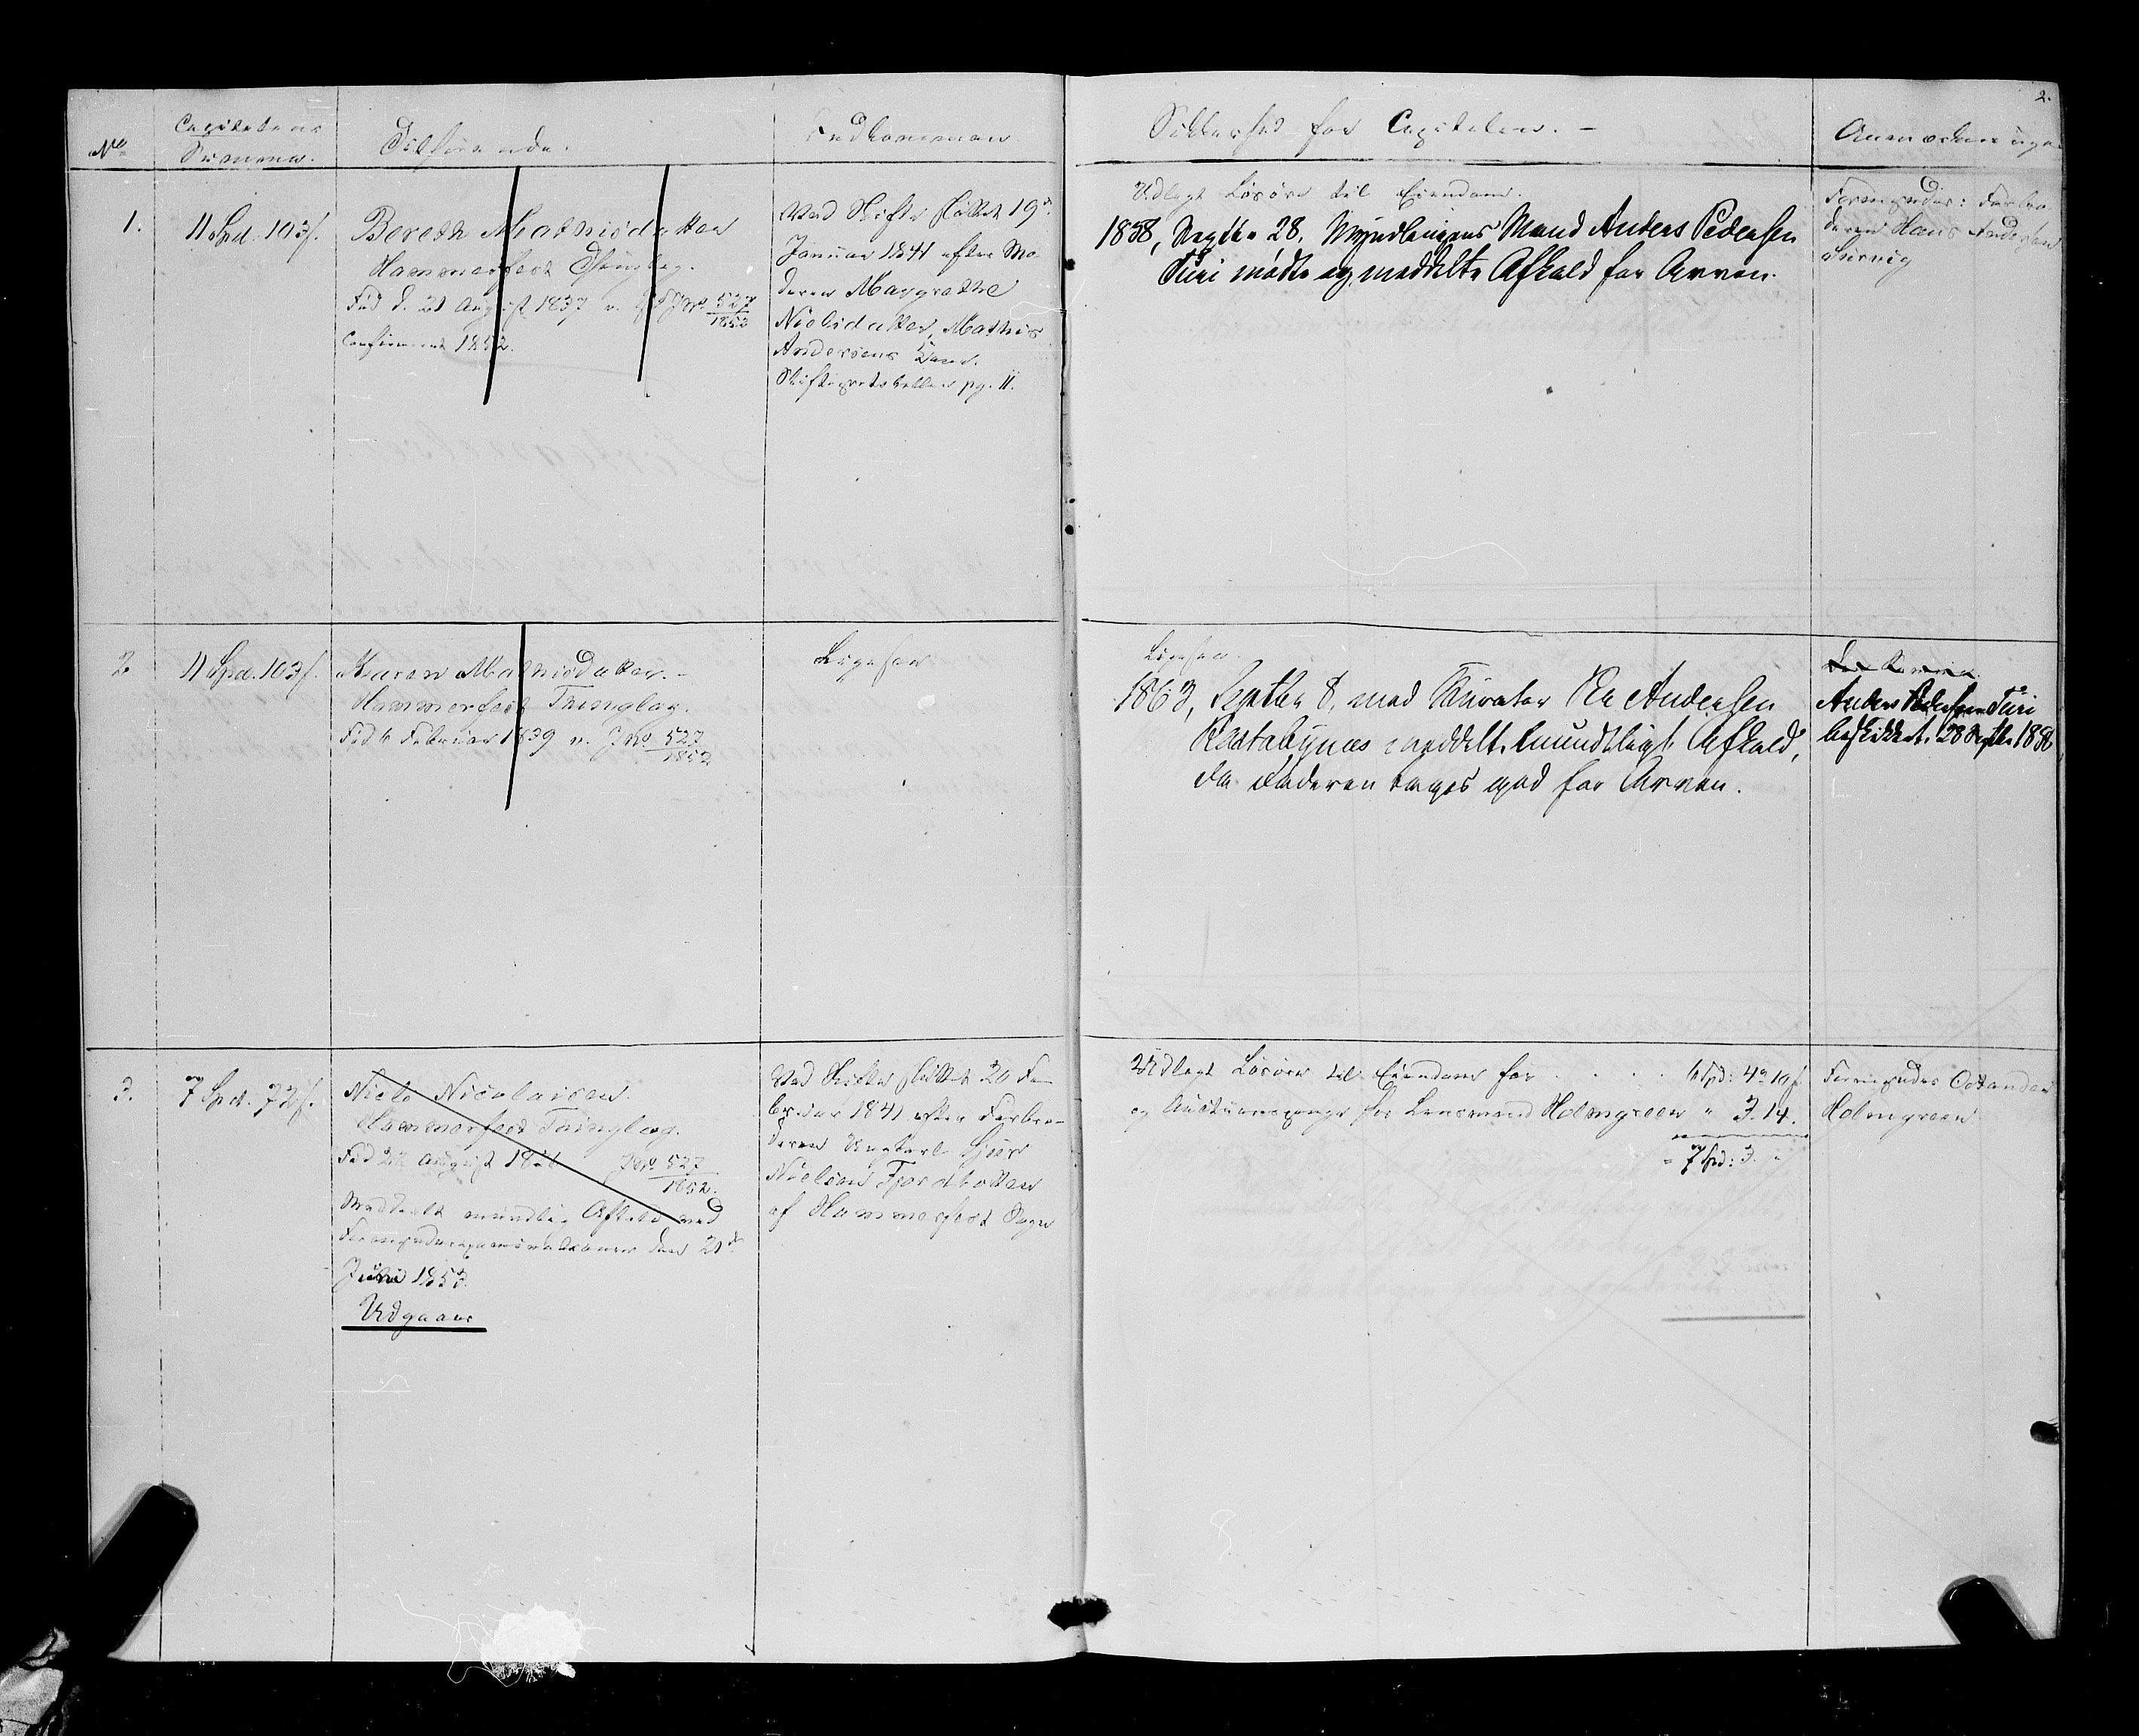 2.
No
Capitalens
Summa.
Tilhørende.
Indkommen
Sikkerhed for Capitalen. –
Anmærkninger
1.
11 Spd. 103 s.
Bereth Mathisdatter
Hammerfest Thinglag.
Fød d. 21 August 1837 Jno. 527
1852
Confirmeret 1852.
Ved Skifte sluttet 19de
Januar 1841 efter Mo-
deren Margrethe
Nielsdatter, Mathis
Andersens
Skifteprotokollen pg. 11.
Udlagt Løsøre til Eiendom.
1858, Septbr 28. Myndlingens Mand Anders Pedersen
Turi mødte og meddelte Afkald for Arven.
Formynder: Farbro-
deren Hans Andersen
2
11 Spd. 103 s.
Karen Mathisdatter. –
Hammerfest Thinglag.
Fød Februar 1839 Jno. 527
1852
Ligesaa
Ligesaa.
1863, Septbr 8. med Kurator Per Andersen
meddelt mundtligt Afkald,
da Faderen tages god for Arven.
Anders Pedersen Turi
beskikket 28 Septbr 1858
3.
7 Spd. 72 s.
Niels Nicolaisen.
Hammerfest Thinglag.
Fød 22 August Jno. 527
1852.
Meddeelt mundtlig Afkald ved
Formynderexaminationen den 21de
Juni 1853.
Udgaaer
Ved Skifte sluttet 20 Fe-
bruar 1841 efter Farbro-
deren Ungkarl
Nielsen Fjordbotten
af Hammerfest Sogn
Udlagt Løsøre til Eiendom for . . . . Spd: 4 10 s.
og Auctionspenge hos Lensmand Holmgreen " 3. 14.
7 Spd: 3.
Formynder
Holmgreen